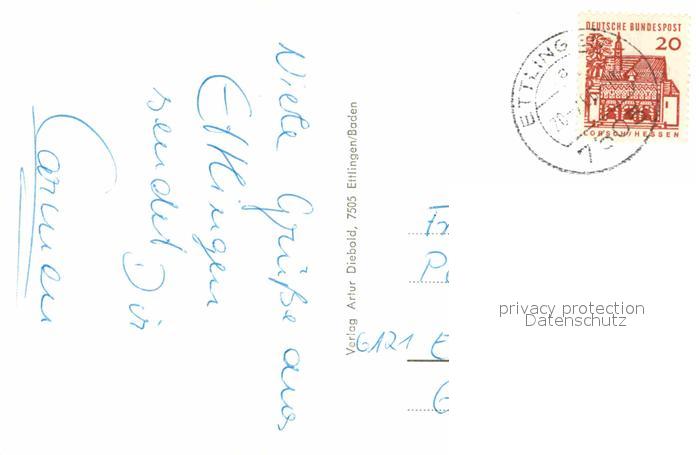 Viele Grüße aus
Ettlingen
sendet Dir
Carmen
Verlag Artur Diebold, 7505 Ettlingen/Baden
DEUTSCHE BUNDESPOST
20
LORSCH/HESSEN
ETTLINGEN
6121 E
privacy protection
Datenschutz